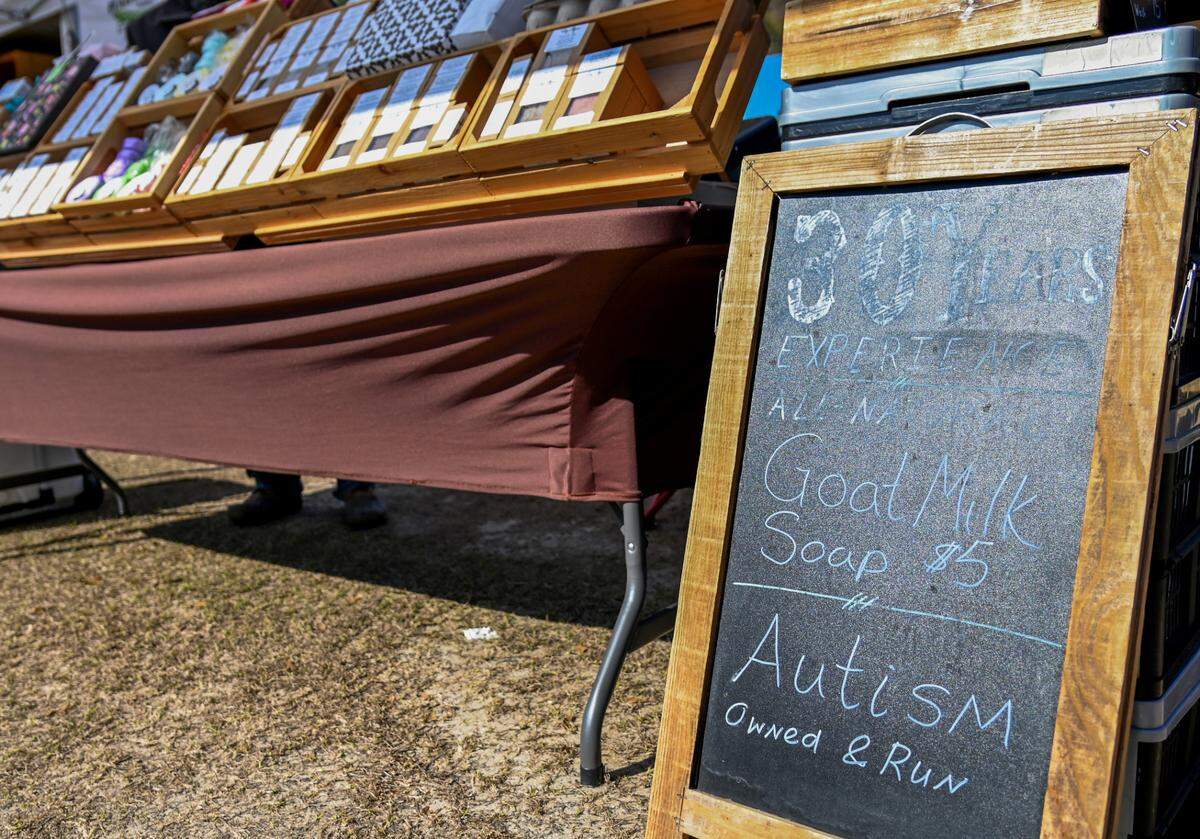 30 YEARS
EXPERIENCE
ALL-NA
Goat Milk
Soap $5
AutisM
Owned & Run